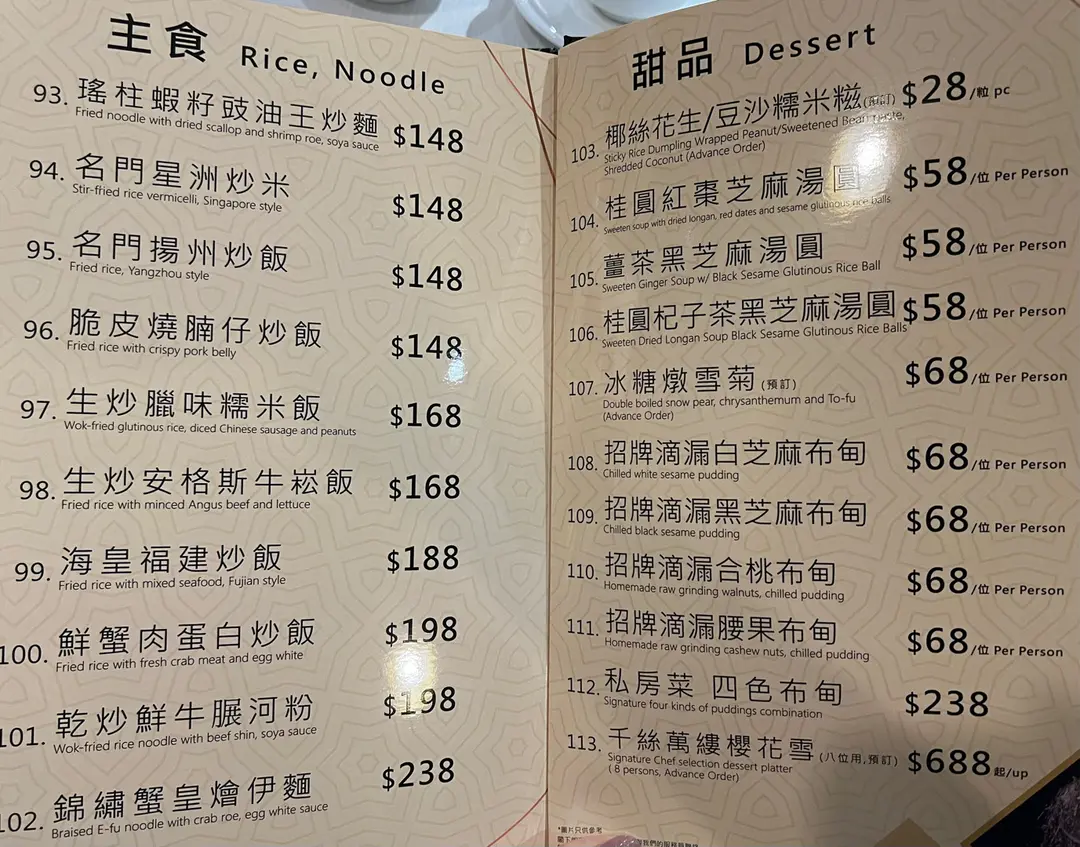 主食 Rice, Noodle
93. 瑤柱蝦籽豉油王炒麵 $148
Fried noodle with dried scallop and shrimp roe, soya sauce
94. 名門星洲炒米 $148
Stir-fried rice vermicelli, Singapore style
95. 名門揚州炒飯 $148
Fried rice, Yangzhou style
96. 脆皮燒腩仔炒飯 $148
Fried rice with crispy pork belly
97. 生炒臘味糯米飯 $168
Wok-fried glutinous rice, diced Chinese sausage and peanuts
98. 生炒安格斯牛崧飯 $168
Fried rice with minced Angus beef and lettuce
99. 海皇福建炒飯 $188
Fried rice with mixed seafood, Fujian style
100. 鮮蟹肉蛋白炒飯 $198
Fried rice with fresh crab meat and egg white
101. 乾炒鮮牛𦟌河粉 $198
Wok-fried rice noodle with beef shin, soya sauce
102. 錦繡蟹皇燴伊麵 $238
Braised E-fu noodle with crab roe, egg white sauce
甜品 Dessert
103. 椰絲花生/豆沙糯米糍(預訂) $28/粒 pc
Sticky Rice Dumpling Wrapped Peanut/Sweetened Bean Paste,
Shredded Coconut (Advance Order)
104. 桂圓紅棗芝麻湯圓 $58/位 Per Person
Sweeten soup with dried longan, red dates and sesame glutinous rice balls
105. 薑茶黑芝麻湯圓 $58/位 Per Person
Sweeten Ginger Soup w/ Black Sesame Glutinous Rice Ball
106. 桂圓杞子茶黑芝麻湯圓 $58/位 Per Person
Sweeten Dried Longan Soup Black Sesame Glutinous Rice Balls
107. 冰糖燉雪菊(預訂) $68/位 Per Person
Double boiled snow pear, chrysanthemum and To-fu
(Advance Order)
108. 招牌滴漏白芝麻布甸 $68/位 Per Person
Chilled white sesame pudding
109. 招牌滴漏黑芝麻布甸 $68/位 Per Person
Chilled black sesame pudding
110. 招牌滴漏合桃布甸 $68/位 Per Person
Homemade raw grinding walnuts, chilled pudding
111. 招牌滴漏腰果布甸 $68/位 Per Person
Homemade raw grinding cashew nuts, chilled pudding
112. 私房菜 四色布甸 $238
Signature four kinds of puddings combination
113. 千絲萬縷櫻花雪(八位用,預訂) $688起/up
Signature Chef selection dessert platter
( 8 persons, Advance Order)
*圖片只供參考